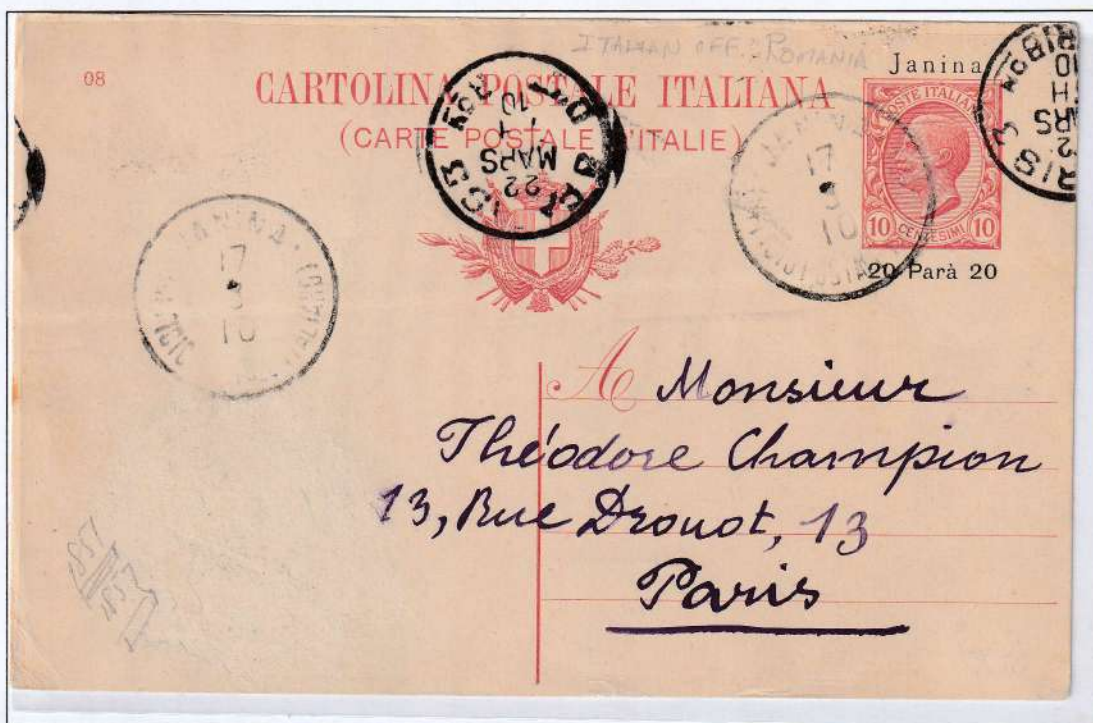 ITALIAN OFF. ROMANIA
Janina
08
CARTOLINA POSTALE ITALIANA
(CARTE POSTALE D'ITALIE)
POSTE ITALIANE
10 CENTESIMI 10
20 Parà 20
22
MARS
10
JANINA
17
3
10
JANINA
17
3
10
A Monsieur
Théodore Champion
13, Rue Drouot, 13
Paris